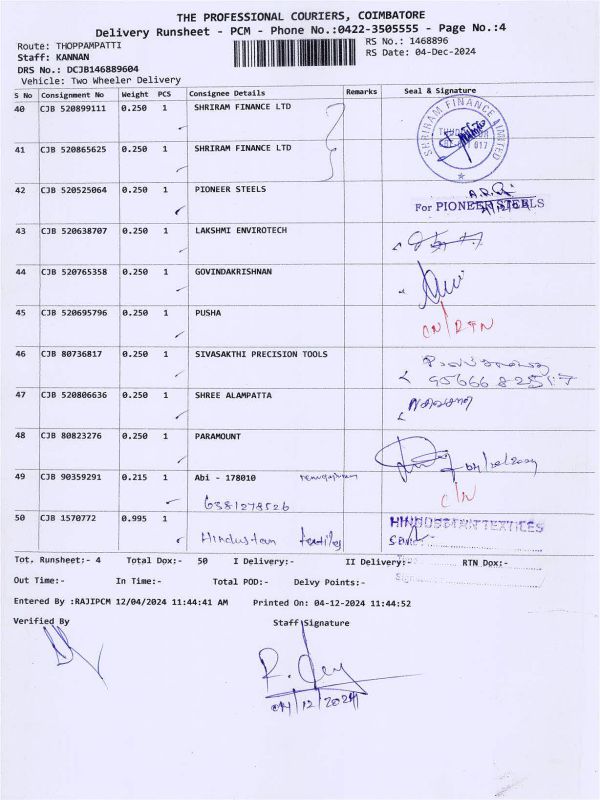 THE PROFESSIONAL COURIERS, COIMBATORE
Delivery Runsheet - PCM - Phone No.:0422-3505555 - Page No.:4
Route: THOPPAMPATTI
RS No.: 1468896
Staff: KANNAN
RS Date: 04-Dec-2024
DRS No.: DCJB146889604
Vehicle: Two Wheeler Delivery
S No Consignment No Weight PCS Consignee Details Remarks Seal & Signature
40 CJB 520899111 0.250 1 SHRIRAM FINANCE LTD
SHRIRAM FINANCE LIMITED
41 CJB 520865625 0.250 1 SHRIRAM FINANCE LTD
42 CJB 520525064 0.250 1 PIONEER STEELS
For PIONEER STEELS
43 CJB 520638707 0.250 1 LAKSHMI ENVIROTECH
44 CJB 520765358 0.250 1 GOVINDAKRISHNAN
45 CJB 520695796 0.250 1 PUSHA
CN/RTN
46 CJB 80736817 0.250 1 SIVASAKTHI PRECISION TOOLS
47 CJB 520806636 0.250 1 SHREE ALAMPATTA
48 CJB 80823276 0.250 1 PARAMOUNT
49 CJB 90359291 0.215 1 Abi - 178010
6381278526
C/N
50 CJB 1570772 0.995 1
Hindustan textiles
HINDUSTAN TEXTILES
Tot. Runsheet:- 4 Total Dox:- 50 I Delivery:- II Delivery:- RTN Dox:-
Out Time:- In Time:- Total POD:- Delvy Points:-
Entered By :RAJIPCM 12/04/2024 11:44:41 AM Printed On: 04-12-2024 11:44:52
Verified By Staff Signature
04/12/2024